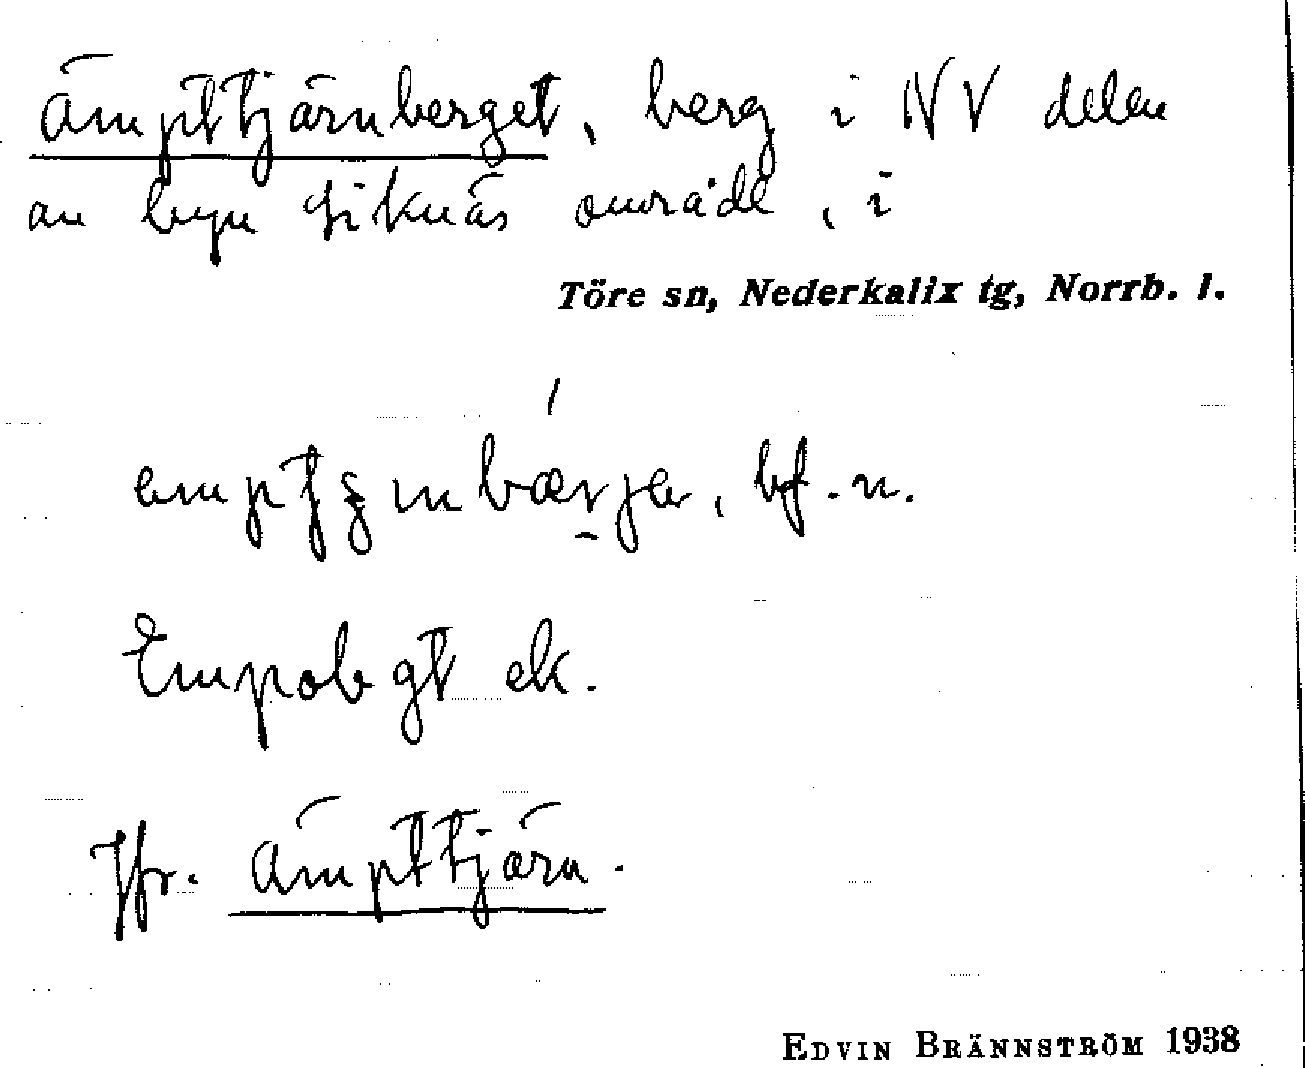 Ämpttjärnberget, berg i NV delen
av byn Siknäs område, i
Töre sn, Nederkalix tg, Norrb. l.
bf. n.
Empobgt ek.
Jfr. Ämpttjärn.
EDVIN BRÄNNSTRÖM 1938